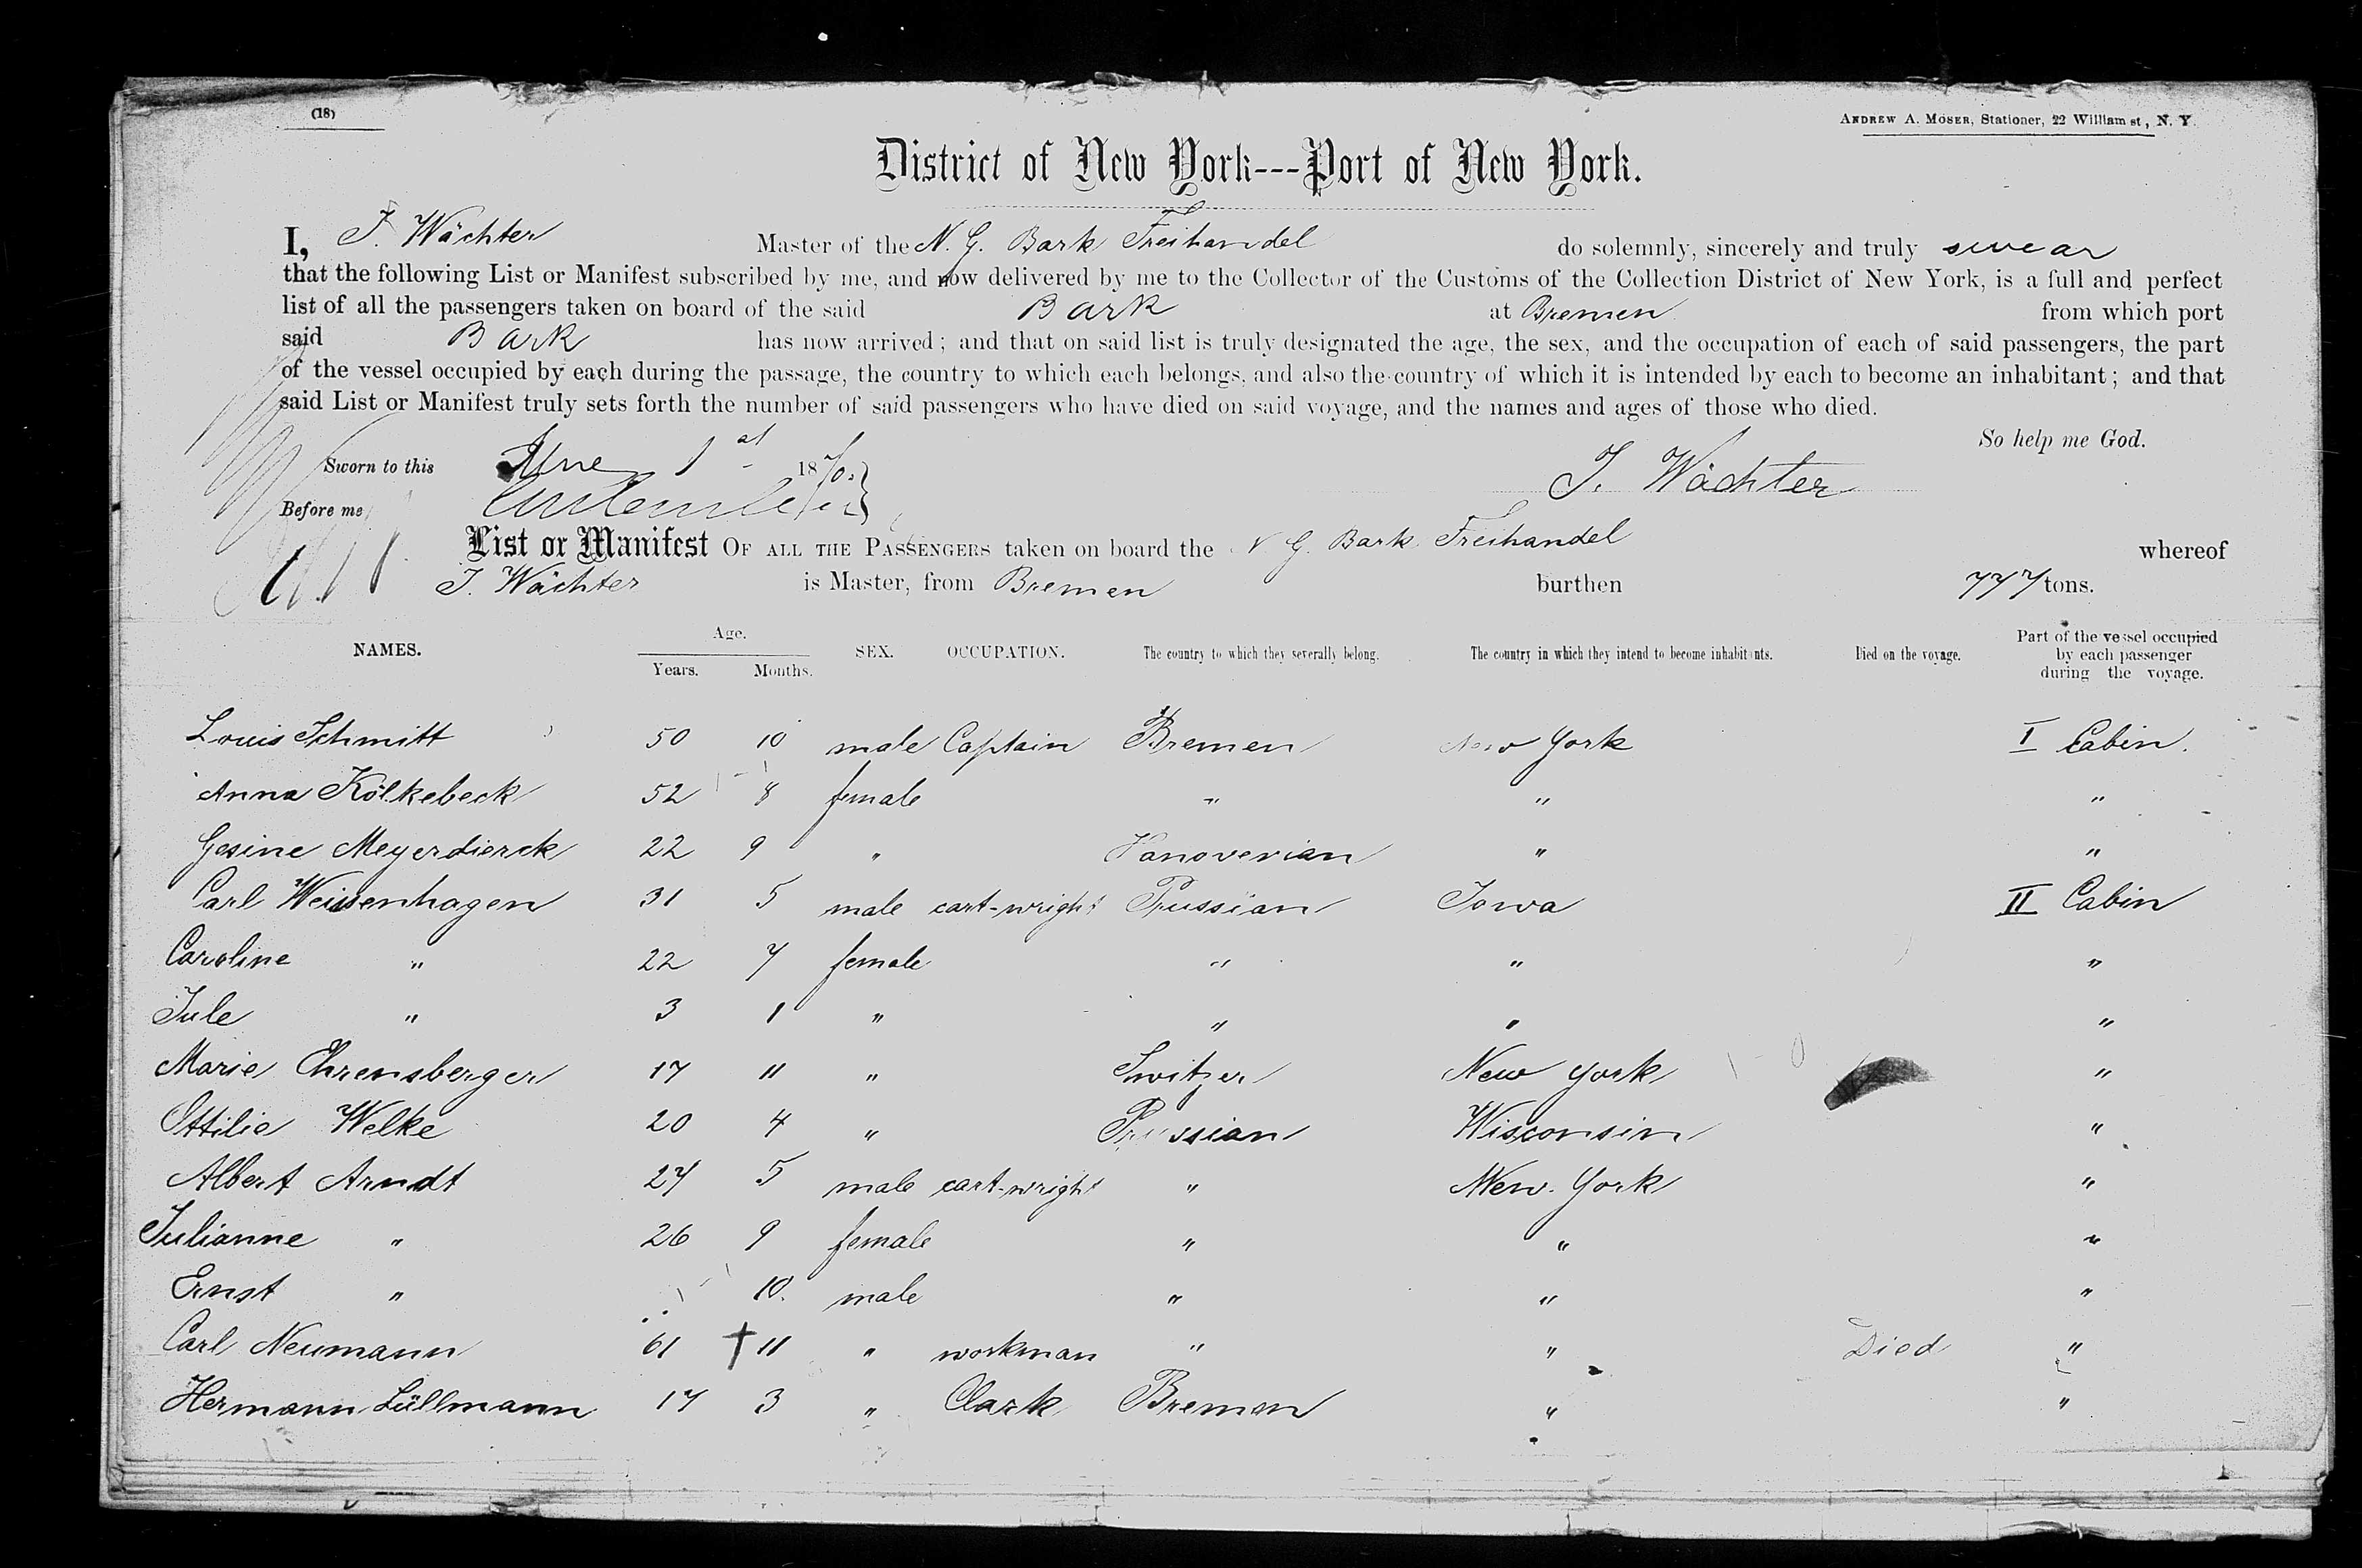 (18)
ANDREW A. MOSER, Stationer, 22 William st, N. Y.
District of New York---Port of New York.
I, J. Wächter Master of the N. G. Bark Freihandel do solemnly, sincerely and truly swear
that the following List or Manifest subscribed by me, and now delivered by me to the Collector of the Customs of the Collection District of New York, is a full and perfect
list of all the passengers taken on board of the said Bark at Bremen from which port
said Bark has now arrived; and that on said list is truly designated the age, the sex, and the occupation of each of said passengers, the part
of the vessel occupied by each during the passage, the country to which each belongs, and also the country of which it is intended by each to become an inhabitant; and that
said List or Manifest truly sets forth the number of said passengers who have died on said voyage, and the names and ages of those who died.
So help me God.
Sworn to this June 1st 1870.
J. Wächter
Before me
List or Manifest OF ALL THE PASSENGERS taken on board the N. G. Bark Freihandel whereof
J. Wächter is Master, from Bremen burthen 777 tons.
NAMES. Age. Years. Months. SEX. OCCUPATION. The country to which they severally belong. The country in which they intend to become inhabitants. Died on the voyage. Part of the vessel occupied by each passenger during the voyage.
Louis Schmitt 50 10 male Captain Bremen New York I Cabin.
Anna Kölkebeck 52 8 female " " "
Gesine Meyerdierck 22 9 " Hanoverian " "
Carl Weissenhagen 31 5 male cart-wright Prussian Iowa II Cabin
Caroline " 22 7 female " " "
Jule " 3 1 " " " "
Marie Ehrensberger 17 11 " Switzer New York "
Ottilie Welke 20 4 " Prussian Wisconsin "
Albert Arndt 27 5 male cart-wright " New York "
Julianne " 26 9 female " " "
Ernst " 10. male " " "
Carl Neumann 61 † 11 " workman " " Died "
Hermann Lüllmann 17 3 " Clark Bremen " "